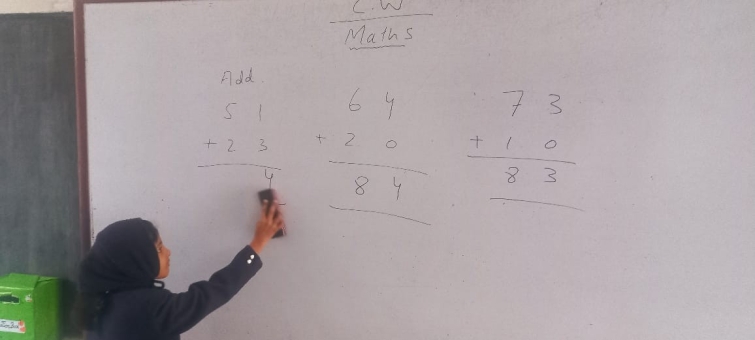 C.W
Maths
Add.
51 64 73
+23 +20 +10
4 84 83